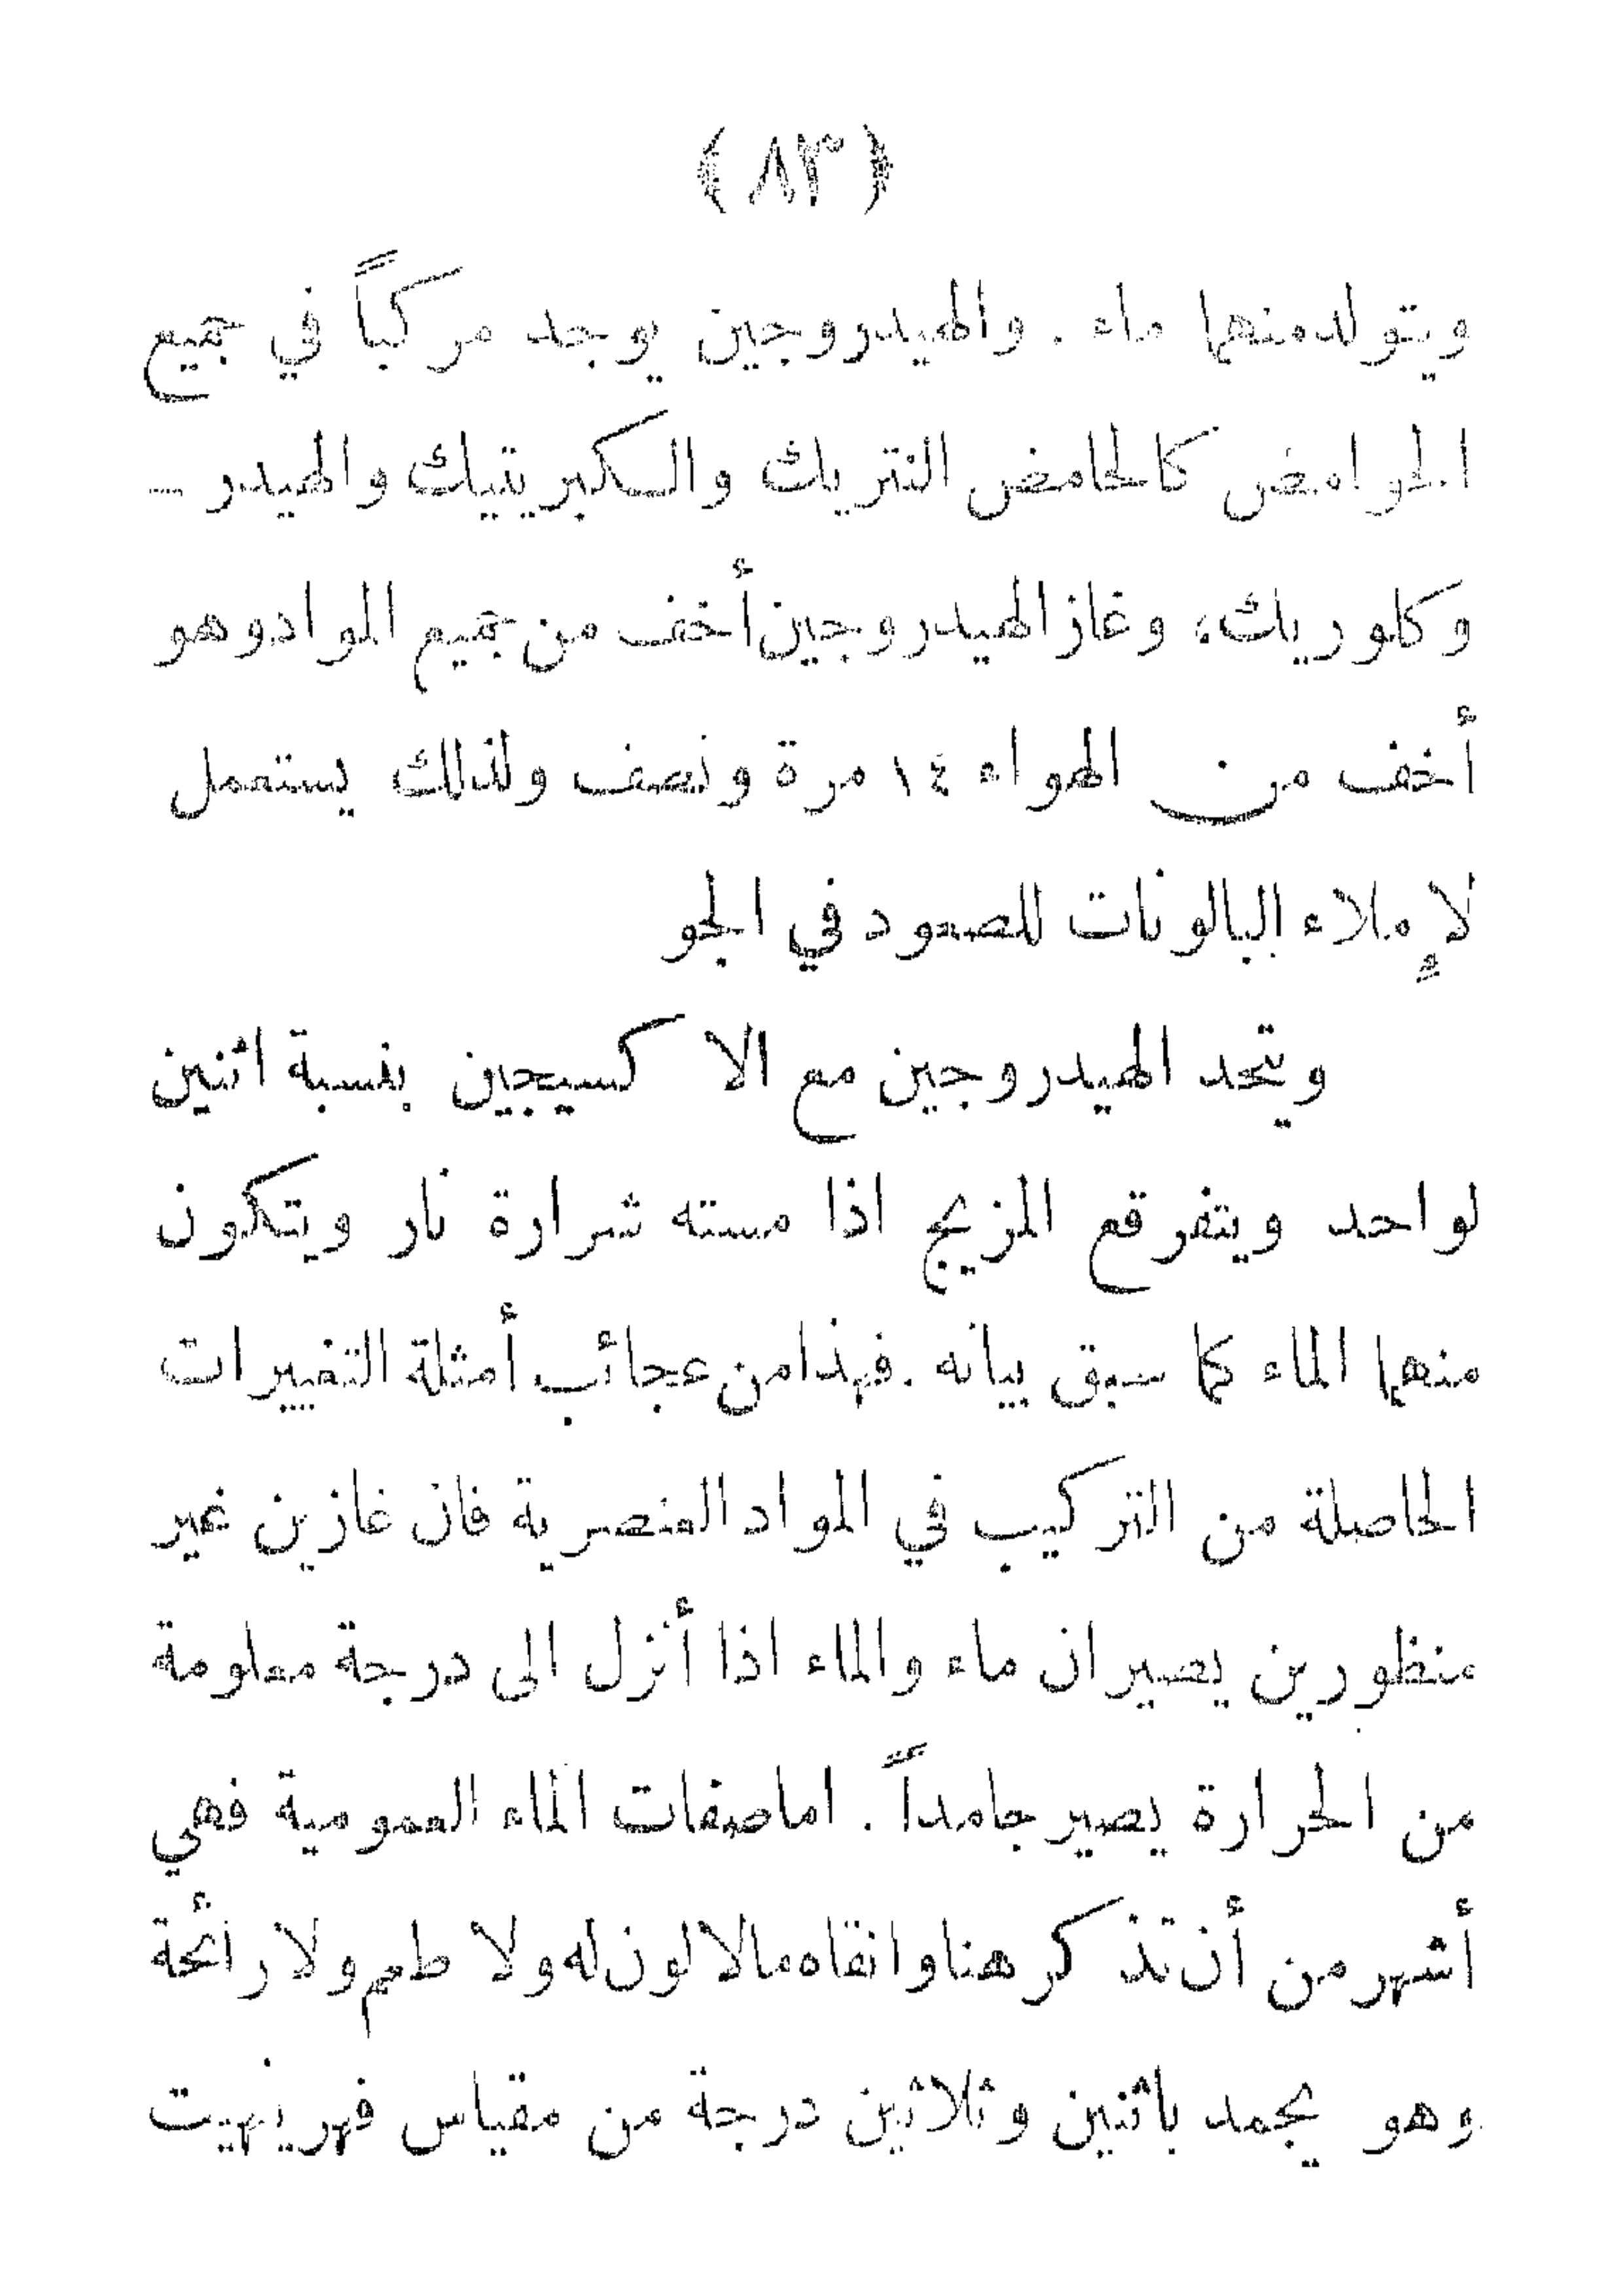 (٨٣)
ويتولد منهما ماء . والهيدروجين يوجد مركباً في جميع
الحوامض كالحامض النتريك والكبريتيك والهيدر -
وكلوريك، وغاز الهيدروجين أخف من جميع المواد وهو
أخف من الهواء ١٤ مرة ونصف ولذلك يستعمل
لإملاء البالونات للصعود في الجو
ويتحد الهيدروجين مع الاكسيجين بنسبة اثنين
لواحد ويتفرقع المزيج اذا مسته شرارة نار ويتكون
منهما الماء كما سبق بيانه . فهذا من عجائب أمثلة التغييرات
الحاصلة من التركيب في المواد العنصرية فان غازين غير
منظورين يصيران ماء والماء اذا أنزل الى درجة معلومة
من الحرارة يصير جامداً . اما صفات الماء العمومية فهي
أشهر من أن تذكر هنا وانقاه مالا لون له ولا طعم ولا رائحة
وهو يجمد باثنين وثلاثين درجة من مقياس فهرنهيت